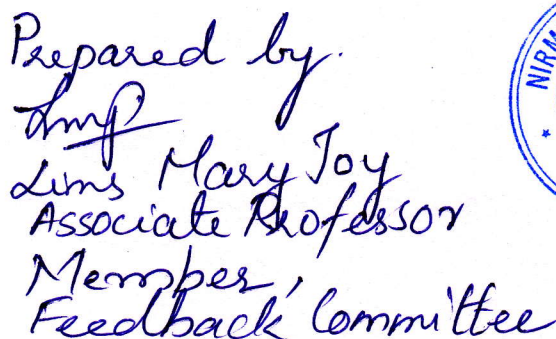 Prepared by.
Lims Mary Joy
Associate Professor
Member,
Feedback Committee
NIRM